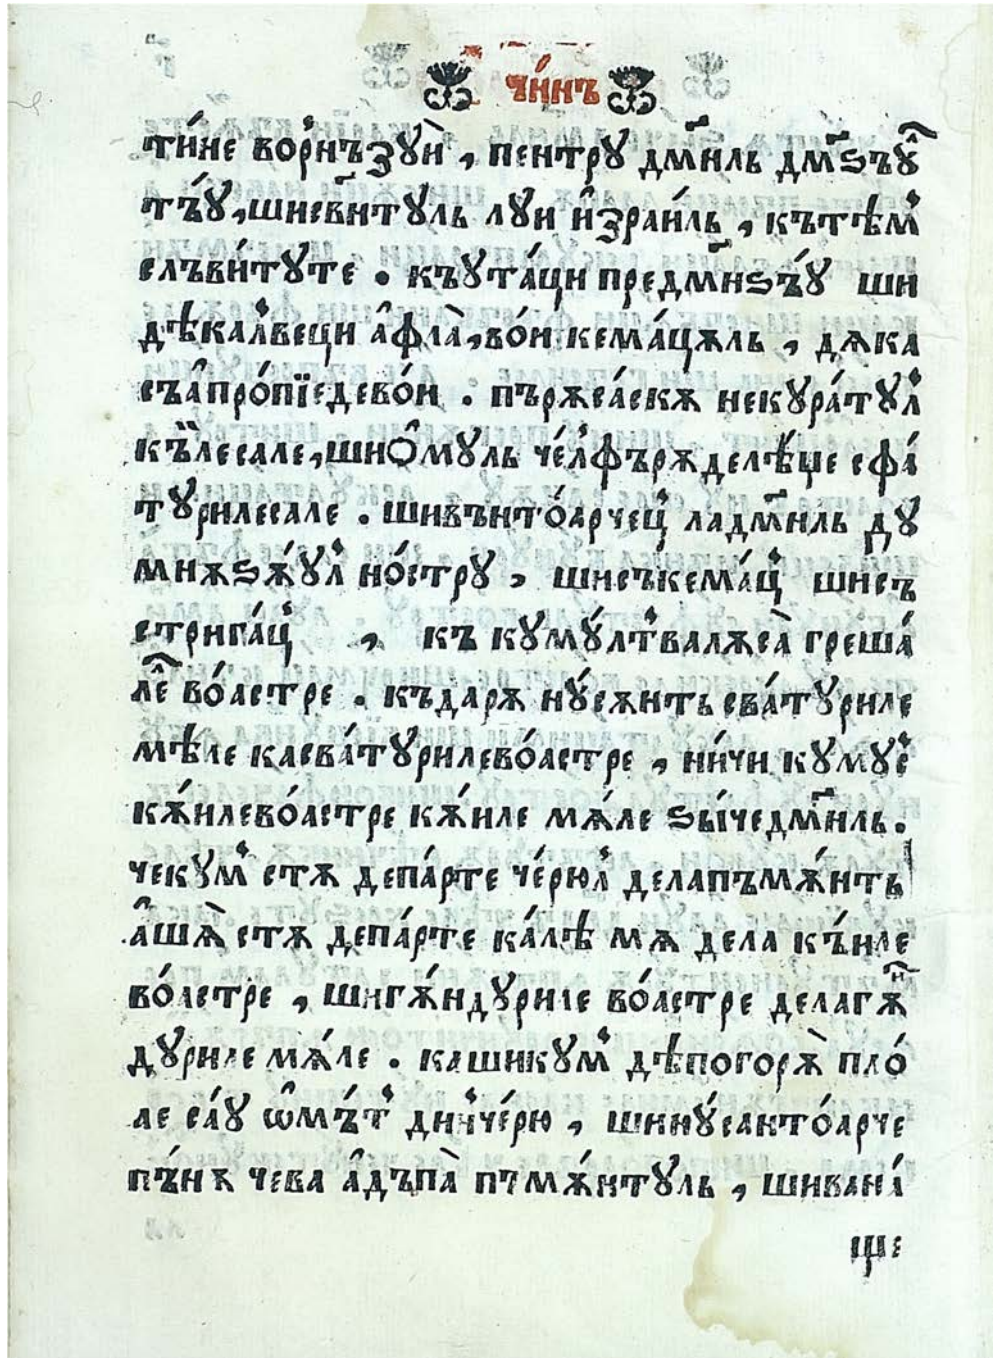 чи́нъ
ти́не вор҆нъзуи҆̀ , пентру дм҃нль дм҃ѕъꙋ̑
тъ́ꙋ , шисвнтꙋль лꙋи и҆зраи́ль , кътѣм҆
слъви́тꙋте . къꙋта́ци предм҃нѕъ́ꙋ ши
дѣка́л҆веци а҆фла̀ , во́и кема́цѫль , дѫка
съа҆про́пїедево́и . пърѫса́скѫ некꙋра́тꙋл҆
къ́лесале , шиѻ҆мꙋль че́л҆фърѫделѣ́џе сфа́
тꙋрилесале . шивънто́арчец҆ ладм҃нль дꙋ
мнѫѕѫ́ꙋл҆ но́стрꙋ , шисъкема́ц҆ шисъ
стрига́ц҆ , къ кꙋмꙋ́лт҆валѫса̀ греша́
ле̑ во́астре . къдарѫ нꙋ́сѫнть сва́тꙋриле
мѣ́ле касва́тꙋрилево́астре , ни́чи кꙋмꙋс҆
кѫ́илево́астре кѫ́иле мѫ́ле ѕы́чедм҃нль .
чекꙋм҆ стѫ депа́рте че́рюл҆ делапъмѫ́нть
а҆шѫ̀ стѫ депа́рте ка́лѣ мѫ дела къ́иле
во́астре , шигѫ́ндꙋриле во́астре делагѫⷩ҇
дꙋриле мѫ́ле . кашикꙋм҆ дѣпогорѫ̀ пло́
ае са́ꙋ ѡ҆мъ́т҆ дин҆че́рю , шинꙋ́сакто́арче
пъ́нѫ чева а҆дъпа̀ пъмѫ́нтꙋль , шивана́
ще